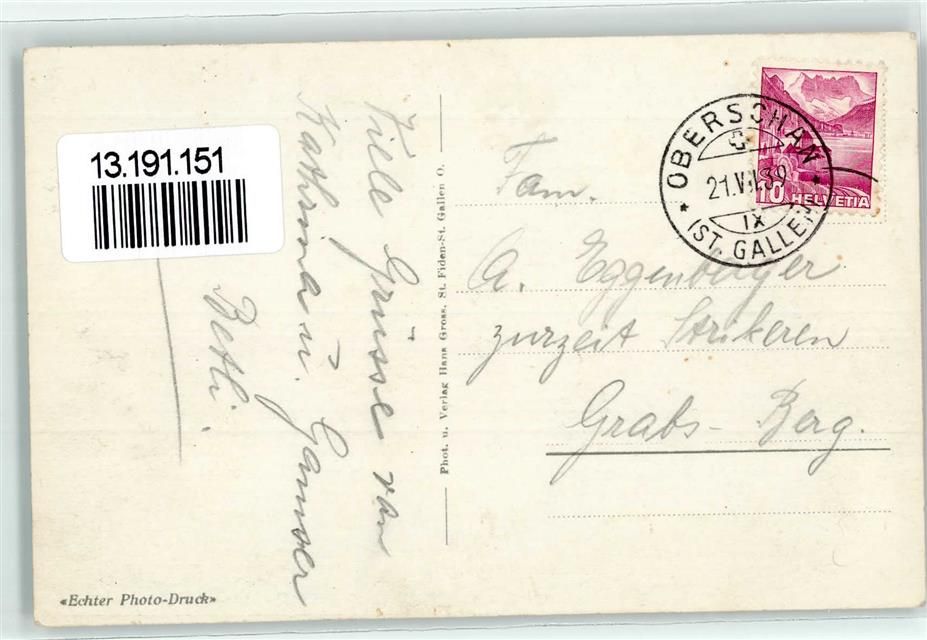 13.191.151
Viele Grüsse von
Kathrina u. Gamser
Betli.
Phot. u. Verlag Hans Gross, St. Fiden-St. Gallen O.
«Echter Photo-Druck»
OBERSCHAN
21.VII.39
IX
(ST. GALLEN)
10 HELVETIA
Fam.
A. Eggenberger
zurzeit Strikeren
Grabs-Berg.